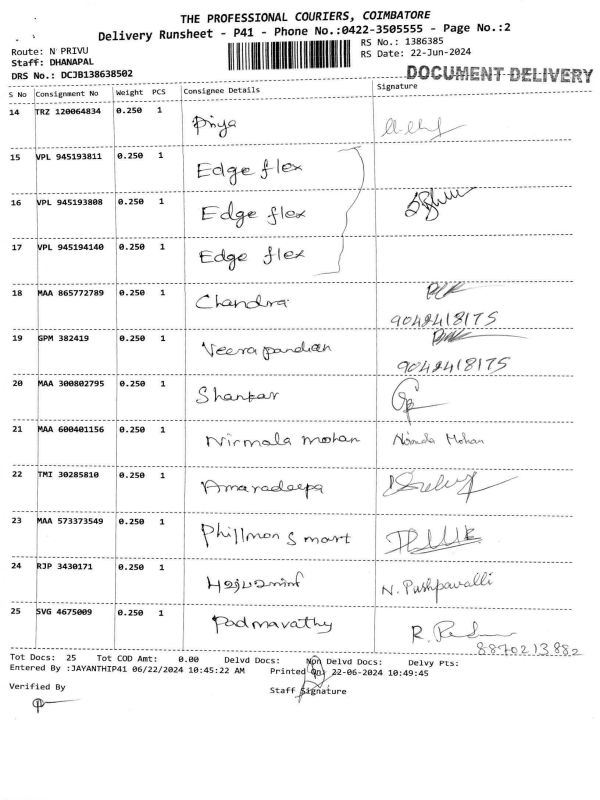 THE PROFESSIONAL COURIERS, COIMBATORE
Delivery Runsheet - P41 - Phone No.:0422-3505555 - Page No.:2
Route: N PRIVU
Staff: DHANAPAL
DRS No.: DCJB138638502
RS No.: 1386385
RS Date: 22-Jun-2024
DOCUMENT DELIVERY
S No Consignment No Weight PCS Consignee Details Signature
14 TRZ 120064834 0.250 1 Priya
15 VPL 945193811 0.250 1 Edge flex
16 VPL 945193808 0.250 1 Edge flex
17 VPL 945194140 0.250 1 Edge flex
18 MAA 865772789 0.250 1 Chandra
9042418175
19 GPM 382419 0.250 1 Veera pandian
9042418175
20 MAA 300802795 0.250 1 Shankar
21 MAA 600401156 0.250 1 Nirmala mohan Nirmala Mohan
22 TMI 30285810 0.250 1 Amaradeepa
23 MAA 573373549 0.250 1 Phillmon Smart
24 RJP 3430171 0.250 1 N. Pushpavalli
25 SVG 4675009 0.250 1 Padmavathy R.
8870213882
Tot Docs: 25 Tot COD Amt: 0.00 Delvd Docs: Non Delvd Docs: Delvy Pts:
Entered By :JAYANTHIP41 06/22/2024 10:45:22 AM Printed On: 22-06-2024 10:49:45
Verified By Staff Signature